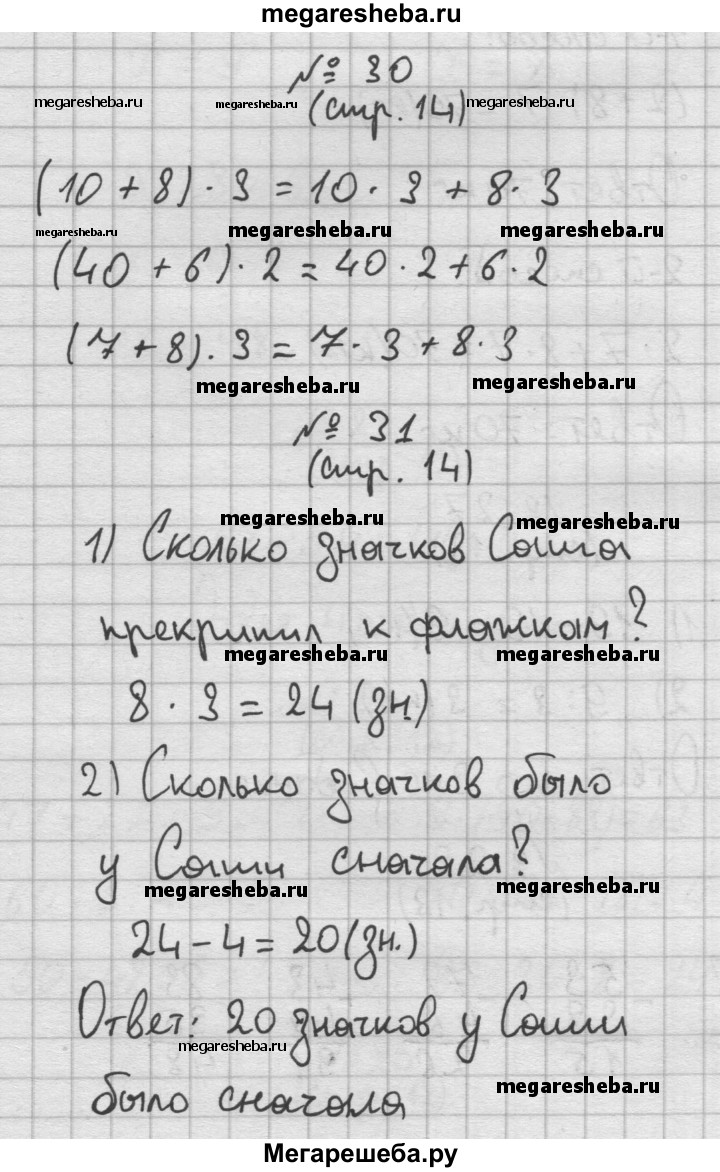 megaresheba.ru
№ 30
megaresheba.ru megaresheba.ru (стр. 14) megaresheba.ru
(10 + 8) · 3 = 10 · 3 + 8 · 3
megaresheba.ru megaresheba.ru megaresheba.ru
(40 + 6) · 2 = 40 · 2 + 6 · 2
(7 + 8) · 3 = 7 · 3 + 8 · 3
megaresheba.ru megaresheba.ru
№ 31
(стр. 14)
megaresheba.ru megaresheba.ru
1) Сколько значков Саша
прекрипил к флажкам?
megaresheba.ru megaresheba.ru
8 · 3 = 24 (зн.)
2) Сколько значков было
у Саши сначала?
megaresheba.ru megaresheba.ru
24 - 4 = 20 (зн.)
Ответ: 20 значков у Саши
megaresheba.ru
было сначала
megaresheba.ru
Мегарешеба.ру